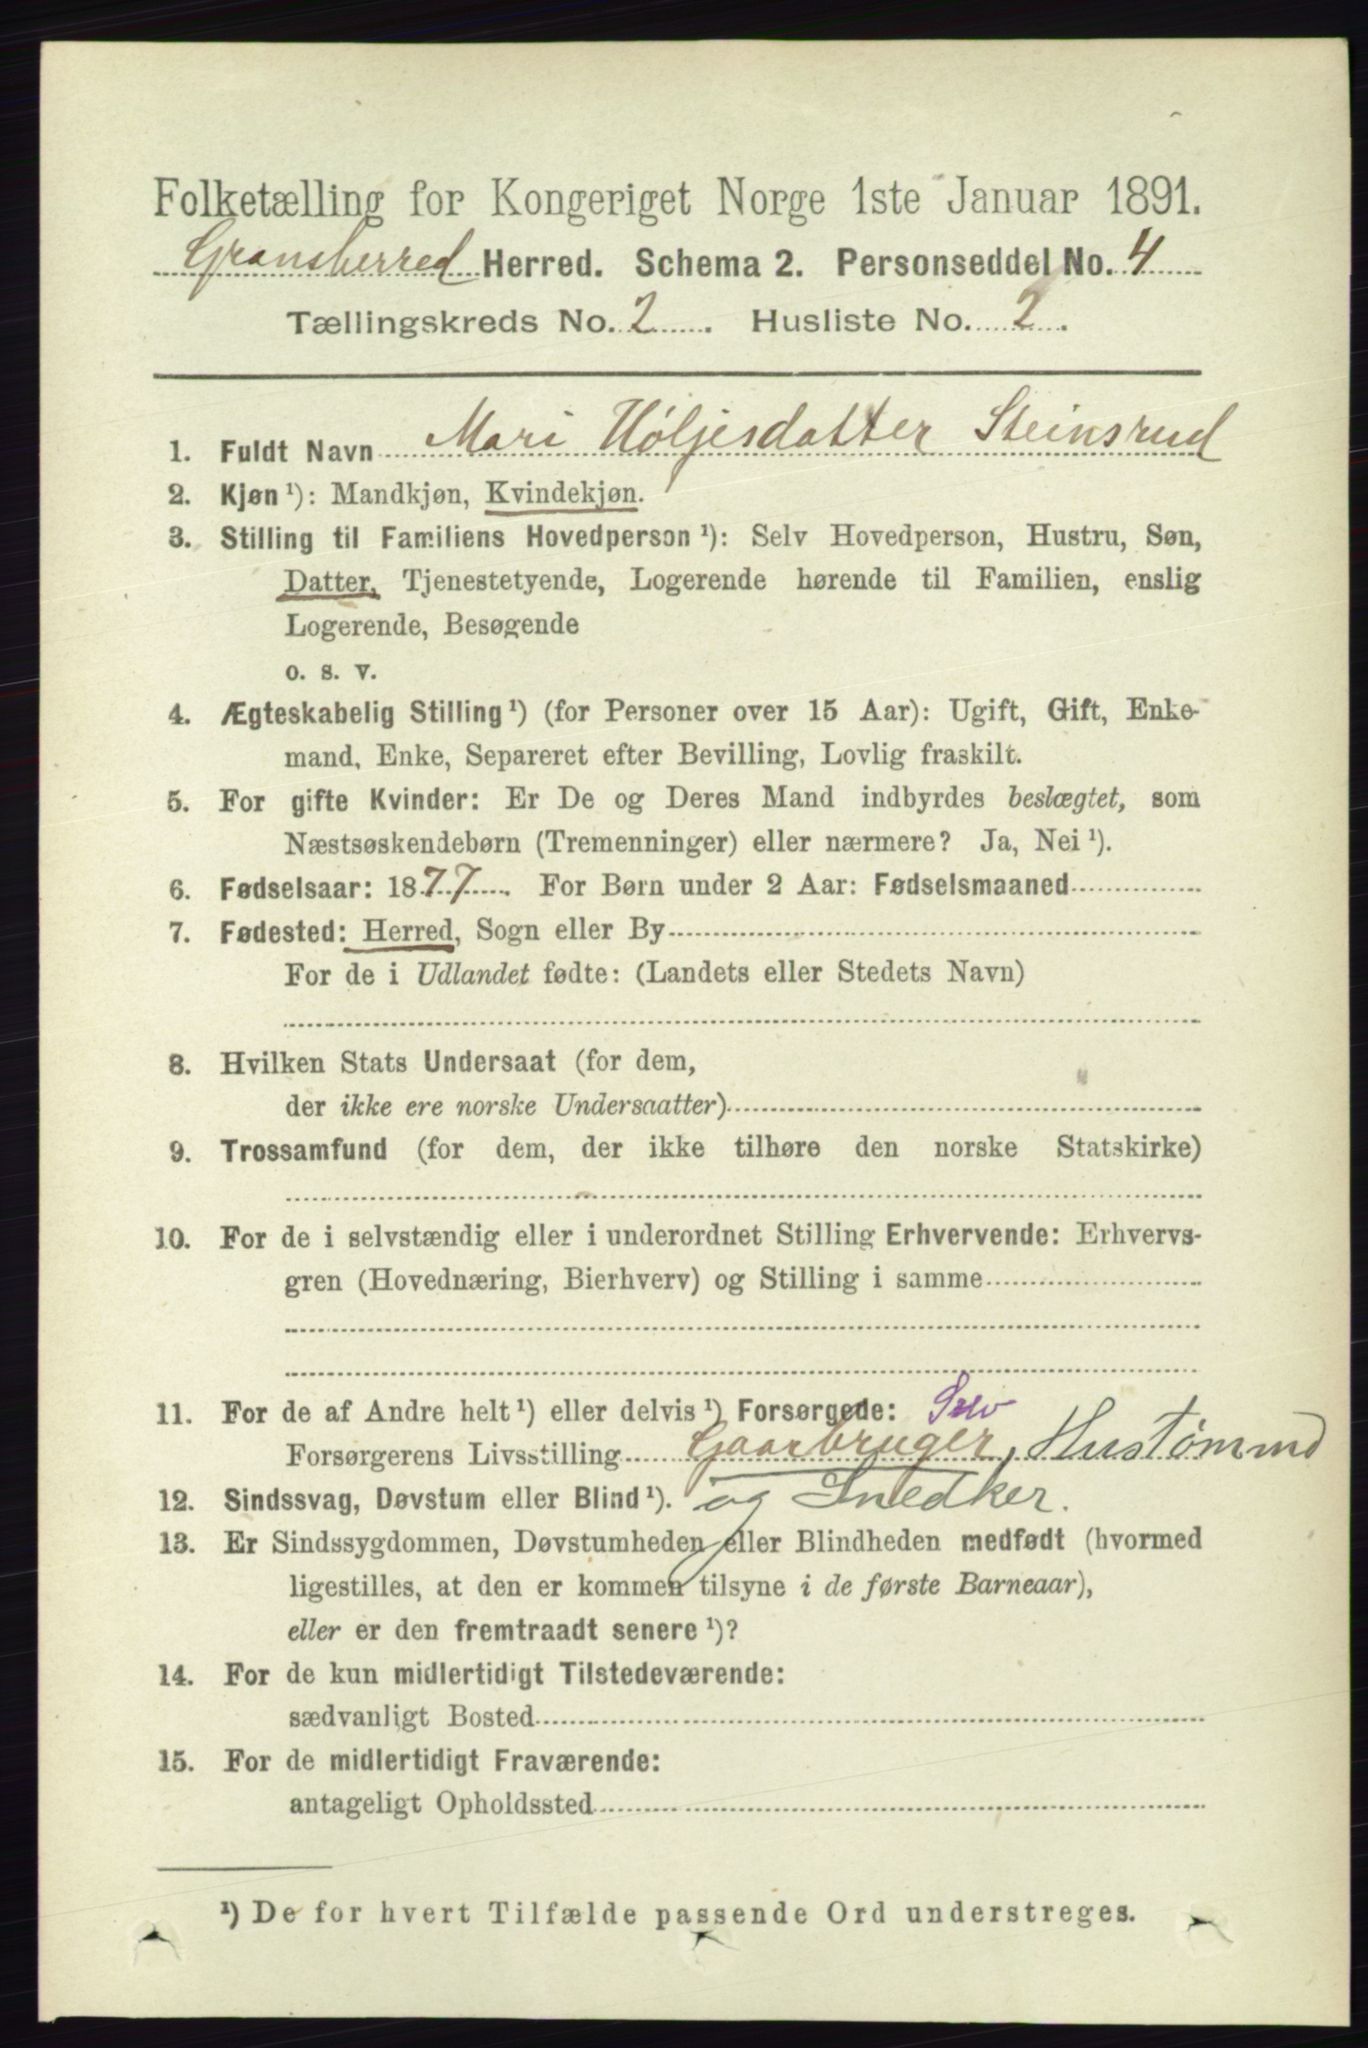 Folketælling for Kongeriget Norge 1ste Januar 1891.
Gransherred Herred. Schema 2. Personseddel No. 4
Tællingskreds No. 2. Husliste No. 2.
1. Fuldt Navn Mari Høljesdatter Steinsrud
2. Kjøn ¹): Mandkjøn, Kvindekjøn.
3. Stilling til Familiens Hovedperson ¹): Selv Hovedperson, Hustru, Søn,
Datter, Tjenestetyende, Logerende hørende til Familien, enslig
Logerende, Besøgende
o. s. v.
4. Ægteskabelig Stilling ¹) (for Personer over 15 Aar): Ugift, Gift, Enke-
mand, Enke, Separeret efter Bevilling, Lovlig fraskilt.
5. For gifte Kvinder: Er De og Deres Mand indbyrdes beslægtet, som
Næstsøskendebørn (Tremenninger) eller nærmere? Ja, Nei ¹).
6. Fødselsaar: 1877. For Børn under 2 Aar: Fødselsmaaned
7. Fødested: Herred, Sogn eller By
For de i Udlandet fødte: (Landets eller Stedets Navn)
8. Hvilken Stats Undersaat (for dem,
der ikke ere norske Undersaatter)
9. Trossamfund (for dem, der ikke tilhøre den norske Statskirke)
10. For de i selvstændig eller i underordnet Stilling Erhvervende: Erhvervs-
gren (Hovednæring, Bierhverv) og Stilling i samme
11. For de af Andre helt ¹) eller delvis ¹) Forsørgede: Selv
Forsørgerens Livsstilling Gaarbruger, Hustømmd
12. Sindssvag, Døvstum eller Blind ¹). og Snedker.
13. Er Sindssygdommen, Døvstumheden eller Blindheden medfødt (hvormed
ligestilles, at den er kommen tilsyne i de første Barneaar),
eller er den fremtraadt senere ¹)?
14. For de kun midlertidigt Tilstedeværende:
sædvanligt Bosted
15. For de midlertidigt Fraværende:
antageligt Opholdssted
¹) De for hvert Tilfælde passende Ord understreges.